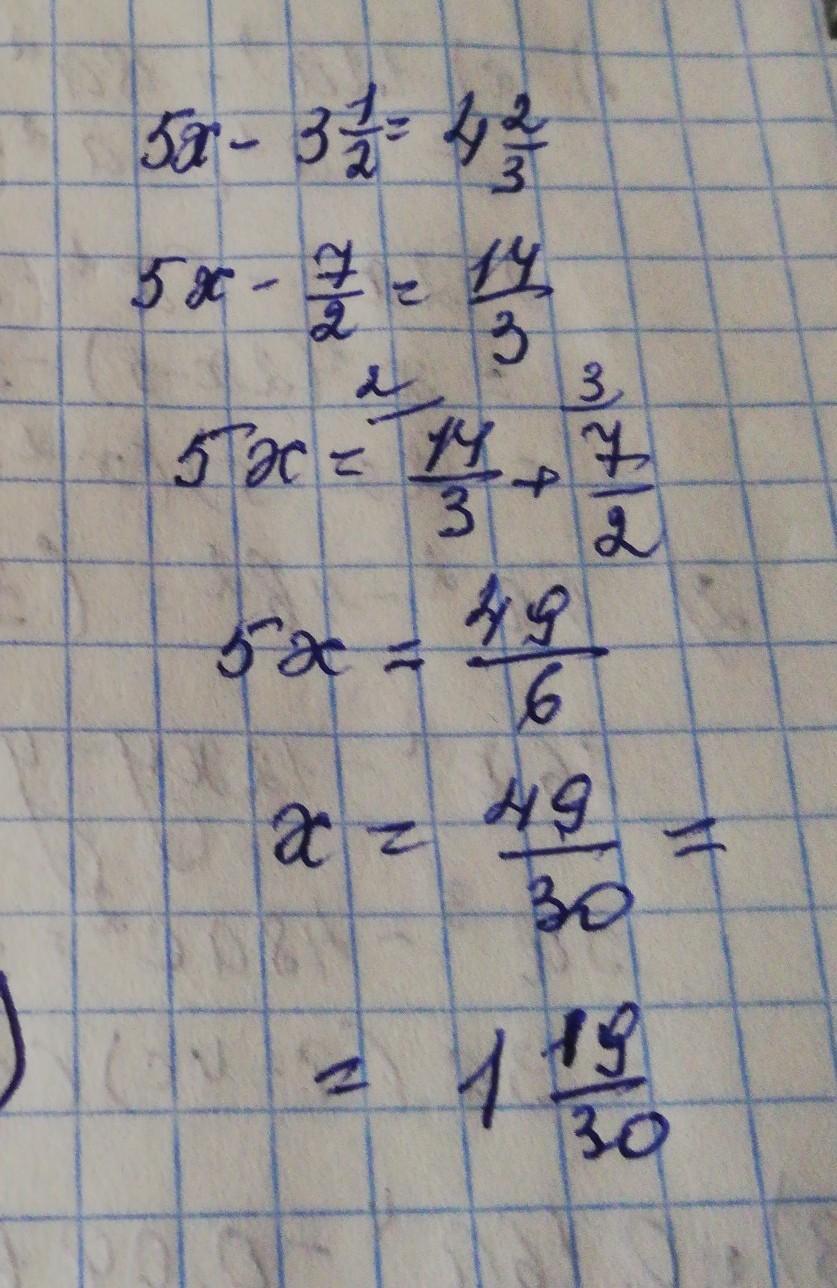 5x - 3 1/2 = 4 2/3
5x - 7/2 = 14/3
2 3
5x = 14/3 + 7/2
5x = 49/6
x = 49/30 =
= 1 19/30